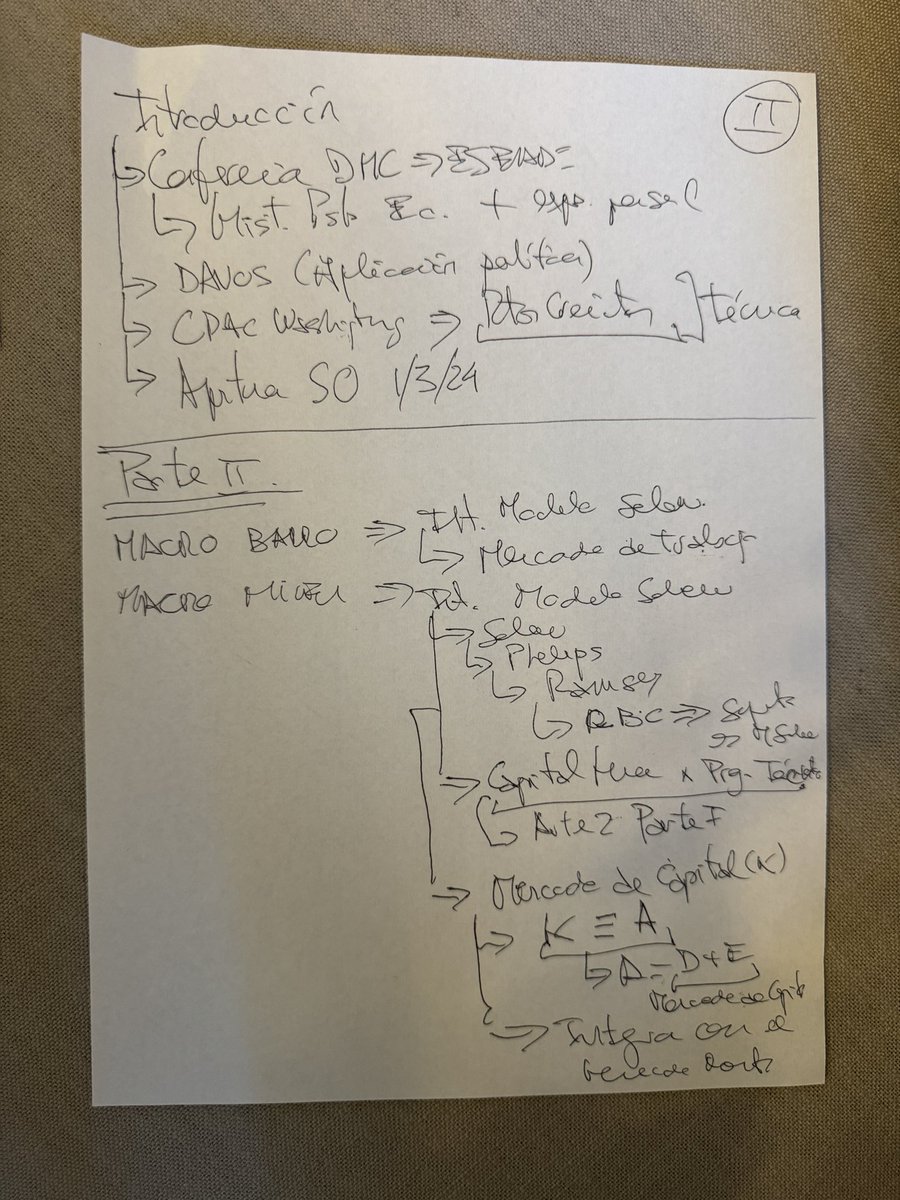 II
Introducción
↳ Conferencia DMC ⇒ ESEADE
↳ Hist. Pto Ec. + exp. personal
→ DAVOS (Aplicación política)
→ CPAC Washington ⇒ Rtos Crecientes ] técnica
↳ Apertura SO 1/3/24
Parte II
MACRO BARRO ⇒ Int. Modelo Solow.
↳ Mercado de trabajo
MACRO MILEI ⇒ Int. Modelo Solow
→ Solow
↳ Phelps
↳ Ramsey
↳ RBC ⇒
→ Capital Hum x Prg. Técnico
↳ Parte I
→ Mercado de Capital (K)
→ K ≡ A
↳ A = D + E
Mercado de Capit
→ Integra con el